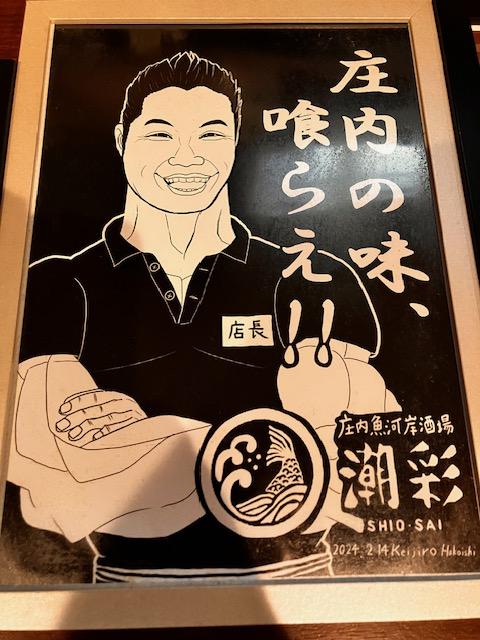 庄内の味、
喰らえ!!
店長
庄内魚河岸酒場
潮彩
SHIO·SAI
2024. 2 14 Keijiro Hakoishi